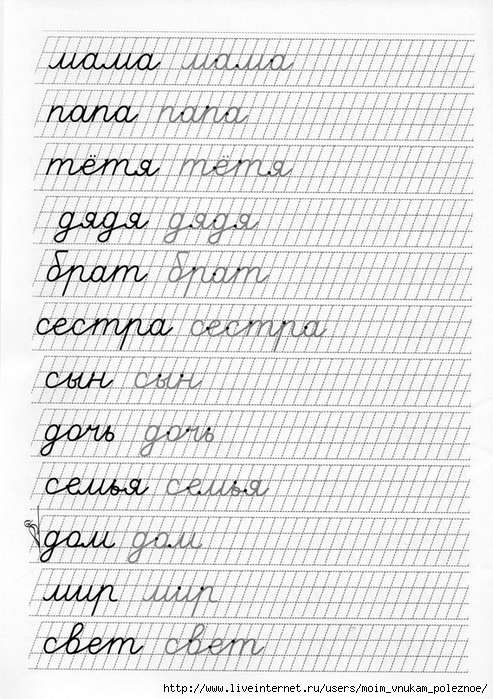 мама мама
папа папа
тётя тётя
дядя дядя
брат брат
сестра сестра
сын сын
дочь дочь
семья семья
дом дом
мир мир
свет свет
http://www.liveinternet.ru/users/moim_vnukam_poleznoe/